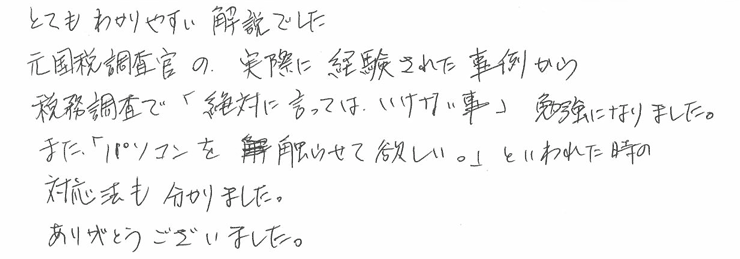 とてもわかりやすい解説でした
元国税調査官の、実際に経験された事例から
税務調査で「絶対に言っては、いけない事」勉強になりました。
また、「パソコンを触らせて欲しい。」といわれた時の
対応法も分かりました。
ありがとうございました。